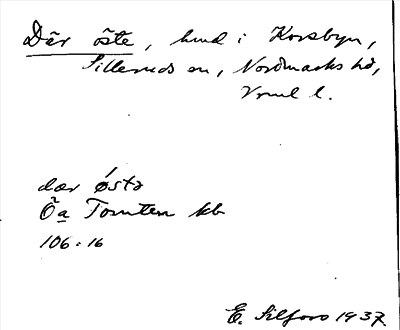 Där öste, hmd i Korsbyn,
Silleruds sn, Nordmarks hd,
Vrml l.
dær østə
Öa Tomten kb
106:16
E. Silfors 1937